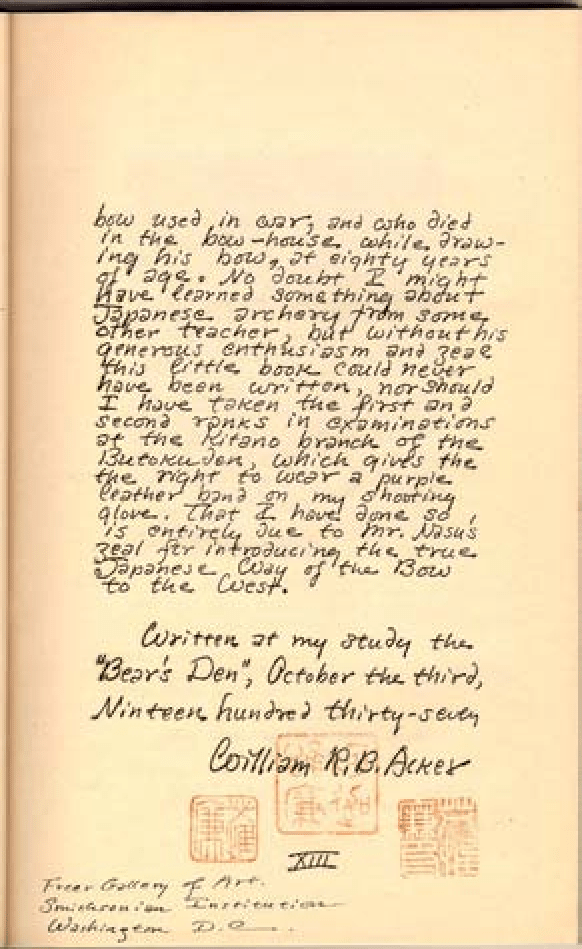 bow used in war, and who died
in the bow-house while draw-
ing his bow, at eighty years
of age. No doubt I might
have learned something about
Japanese archery from some
other teacher, but without his
generous enthusiasm and zeal
this little book could never
have been written, nor should
I have taken the first and
second ranks in examinations
at the Kitano branch of the
Butokuden, which gives the
the right to wear a purple
leather band on my shooting
glove. That I have done so,
is entirely due to Mr. Nasus
zeal for introducing the true
Japanese Way of the Bow
to the West.
Written at my study the
"Bear's Den", October the third,
Ninteen hundred thirty-seven
William R.B. Acker
XIII
Freer Gallery of Art.
Smithsonian Institution
Washington D.C.